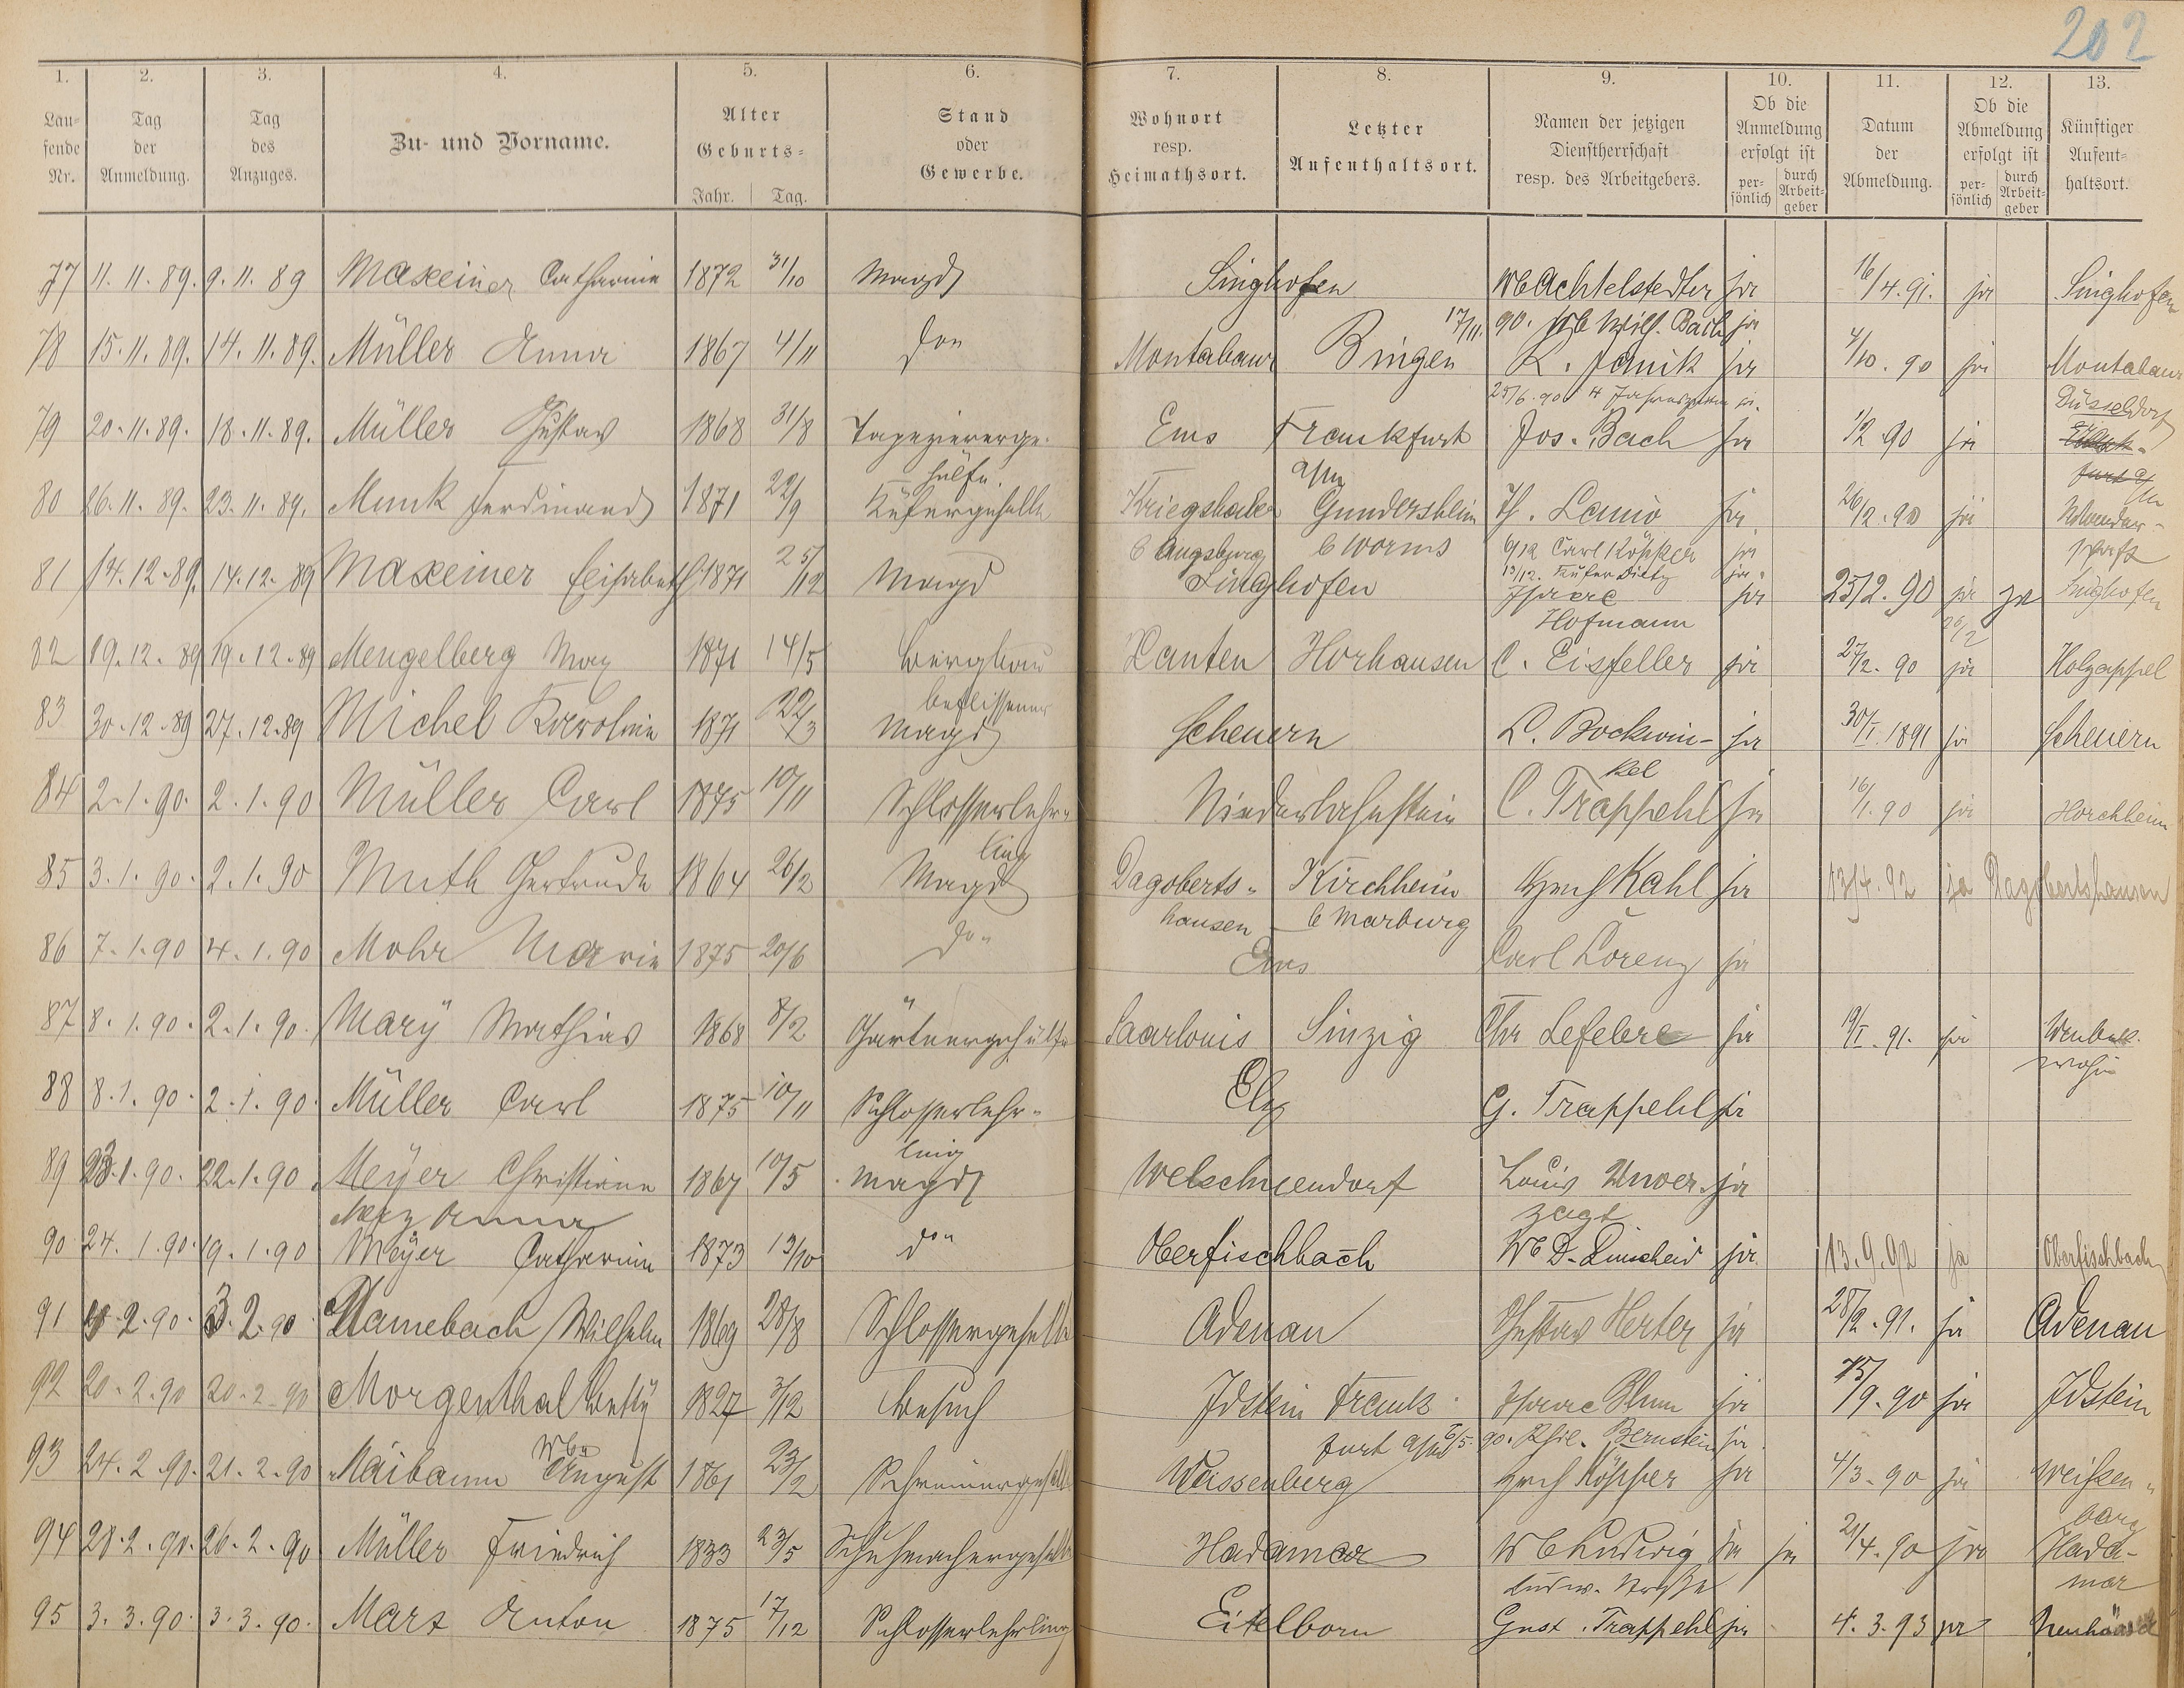 202
1. 2. 3. 4. 5. 6. 7. 8. 9. 10. 11. 12. 13.
Laufende Nr. Tag der Anmeldung. Tag des Anzuges. Zu- und Vorname. Alter Geburts- Jahr. Tag. Stand oder Gewerbe. Wohnort resp. Heimathsort. Letzter Aufenthaltsort. Namen der jetzigen Dienstherrschaft resp. des Arbeitgebers. Ob die Anmeldung erfolgt ist persönlich durch Arbeitgeber Datum der Abmeldung. Ob die Abmeldung erfolgt ist persönlich durch Arbeitgeber Künftiger Aufenthaltsort.
77 11.11.89. 9.11.89 Maxeiner Catharine 1872 31/10 Magd Singhofen Wb Achtelstedter ja 16/4.91. ja Singhofen
17/11. 90. Wb Wilh. Bach ja
78 15.11.89. 14.11.89. Müller Anna 1867 4/11 Don Montabaur Bingen K. Janik ja 4/10.90 ja Montabaur
25/6.90
79 20.11.89. 18.11.89. Müller Gustav 1868 31/8 Tapezierergehülfe. Ems Frankfurt a/m Jos. Bach ja 1/2 90 ja Düsseldorf
80 26.11.89. 23.11.89. Munk Ferdinand 1871 22/9 Küfergeselle Kriegshaber b Augsburg Gundersheim b Worms H. Lanio ja 26/2.90 ja Wanderschaft
6/12 Carl Köpper ja
13/12. Küfer Dietz ja
81 14.12.89. 14.12.89 Maxeiner Elisabeth 1871 25/12 Magd Singhofen Isaac Hofmann ja 25/2.90 ja Singhofen
26/2
82 19.12.89 19.12.89 Mengelberg Max 1871 14/5 Bergbau beflissener Xanten Horhausen C. Eisfeller ja 27/2.90 ja Holzappel
83 30.12.89 27.12.89 Michel Karoline 1871 22/3 Magd Scheuern L. Bockwinkel ja 30/I.1891 ja Scheuern
84 2.1.90. 2.1.90 Müller Carl 1875 10/11 Schlosserlehrling Niederlahnstein C. Trappehl ja 16/1.90 ja Horchheim
85 3.1.90. 2.1.90 Muth Gertrude 1864 26/2 Magd Dagobertshausen Kirchheim b Marburg Hrch Kahl ja 13/4.92 ja Dagobertshausen
86 7.1.90 4.1.90 Mohr Marie 1875 20/6 Don Ems Carl Lorenz ja
87 8.1.90. 2.1.90. Marÿ Mathias 1868 8/2 Gärtnergehülfe Saarlouis Sinzig Chr Lefebre ja 19/I.91. ja Unbek. wohin
88 8.1.90. 2.1.90. Müller Carl 1875 10/11 Schlosserlehrling Elz G. Trappehl ja
89 23.1.90. 22.1.90 Meÿer Christiane 1867 10/5 Magd Welschneudorf Louis Unverzagt ja
Anna
90 24.1.90. 19.1.90 Meÿer Catharine 1873 13/10 Don Oberfischbach Wb D. Linscheid ja 13.9.92 ja Oberfischbach
91 2.90. 3.2.90 Mannebach Wilhelm 1869 28/8 Schlossergeselle Adenau Gustav Herter ja 28/2.91. ja Adenau
92 20.2.90 20.2.90 Morgenthal Bettÿ Wbe 1827 3/12 Besuch Idstein Frankfurt a/m Isaac Blum ja 15/9.90 ja Idstein
6/5.90. Bernstein ja
93 24.2.90. 21.2.90 Maibaum August 1861 23/2 Schreinergeselle Weissenberg Hrch Köpper ja 4/3.90 ja Weißenberg
94 28.2.90. 26.2.90 Müller Friedrich 1833 23/5 Schuhmachergeselle Hadamar W b Ludwig ja ja 21/4.90 ja Hadamar
95 3.3.90. 3.3.90. Marx Anton 1875 17/12 Schlosserlehrling Eitelborn Gust. Trappehl ja 4.3.93 ja Neuhäusel